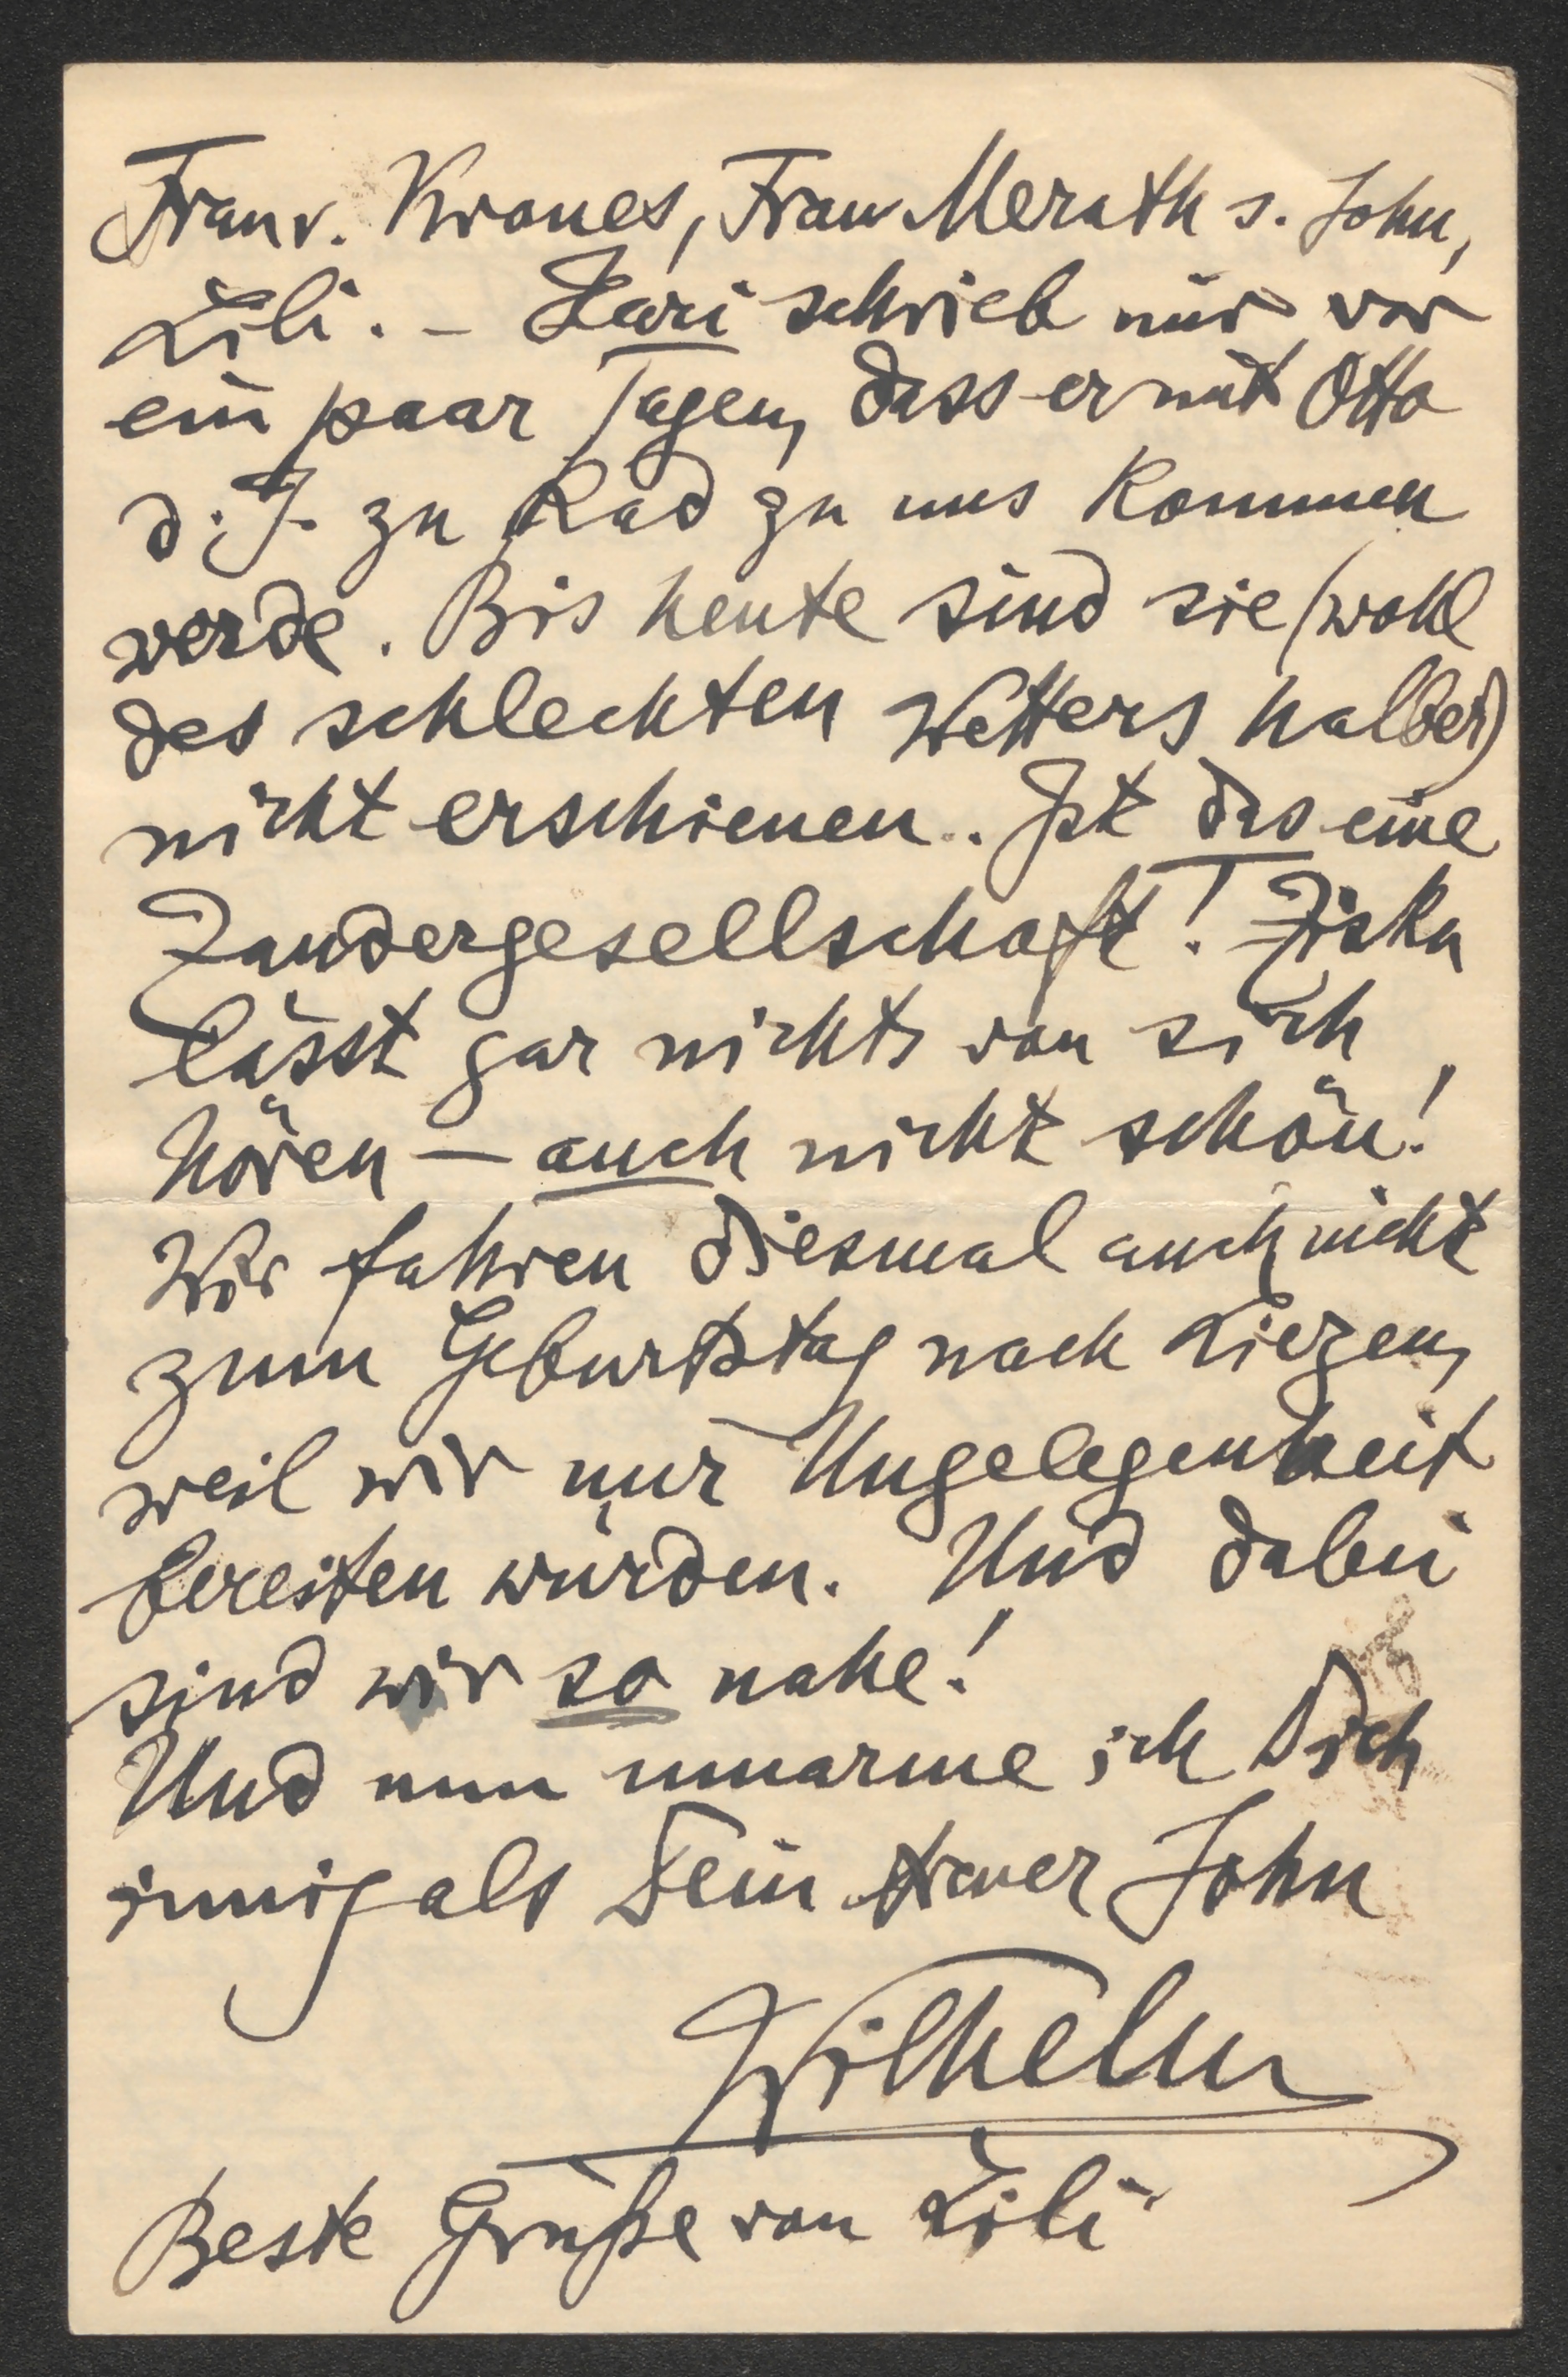 Frau v. Krones, Frau Merath s. John,
Lili. – Hari schrieb mir vor
ein paar Tagen, dass er mit Otto
d. J. zu Rad zu uns kommen
werde. Bis heute sind sie (wohl
des schlechten Wetters halber)
nicht erschienen. Ist das eine
Zaudergesellschaft! Ziska
lässt gar nichts von sich
hören – auch nicht schön!
Wir fahren diesmal auch nicht
zum Geburtstag nach Liezen,
weil wir nur Ungelegenheit
bereiten würden. Und dabei
sind wir so nahe!
Und nun umarme ich Dich
innig als Dein treuer John
Wilhelm
Beste Grüße von Lili